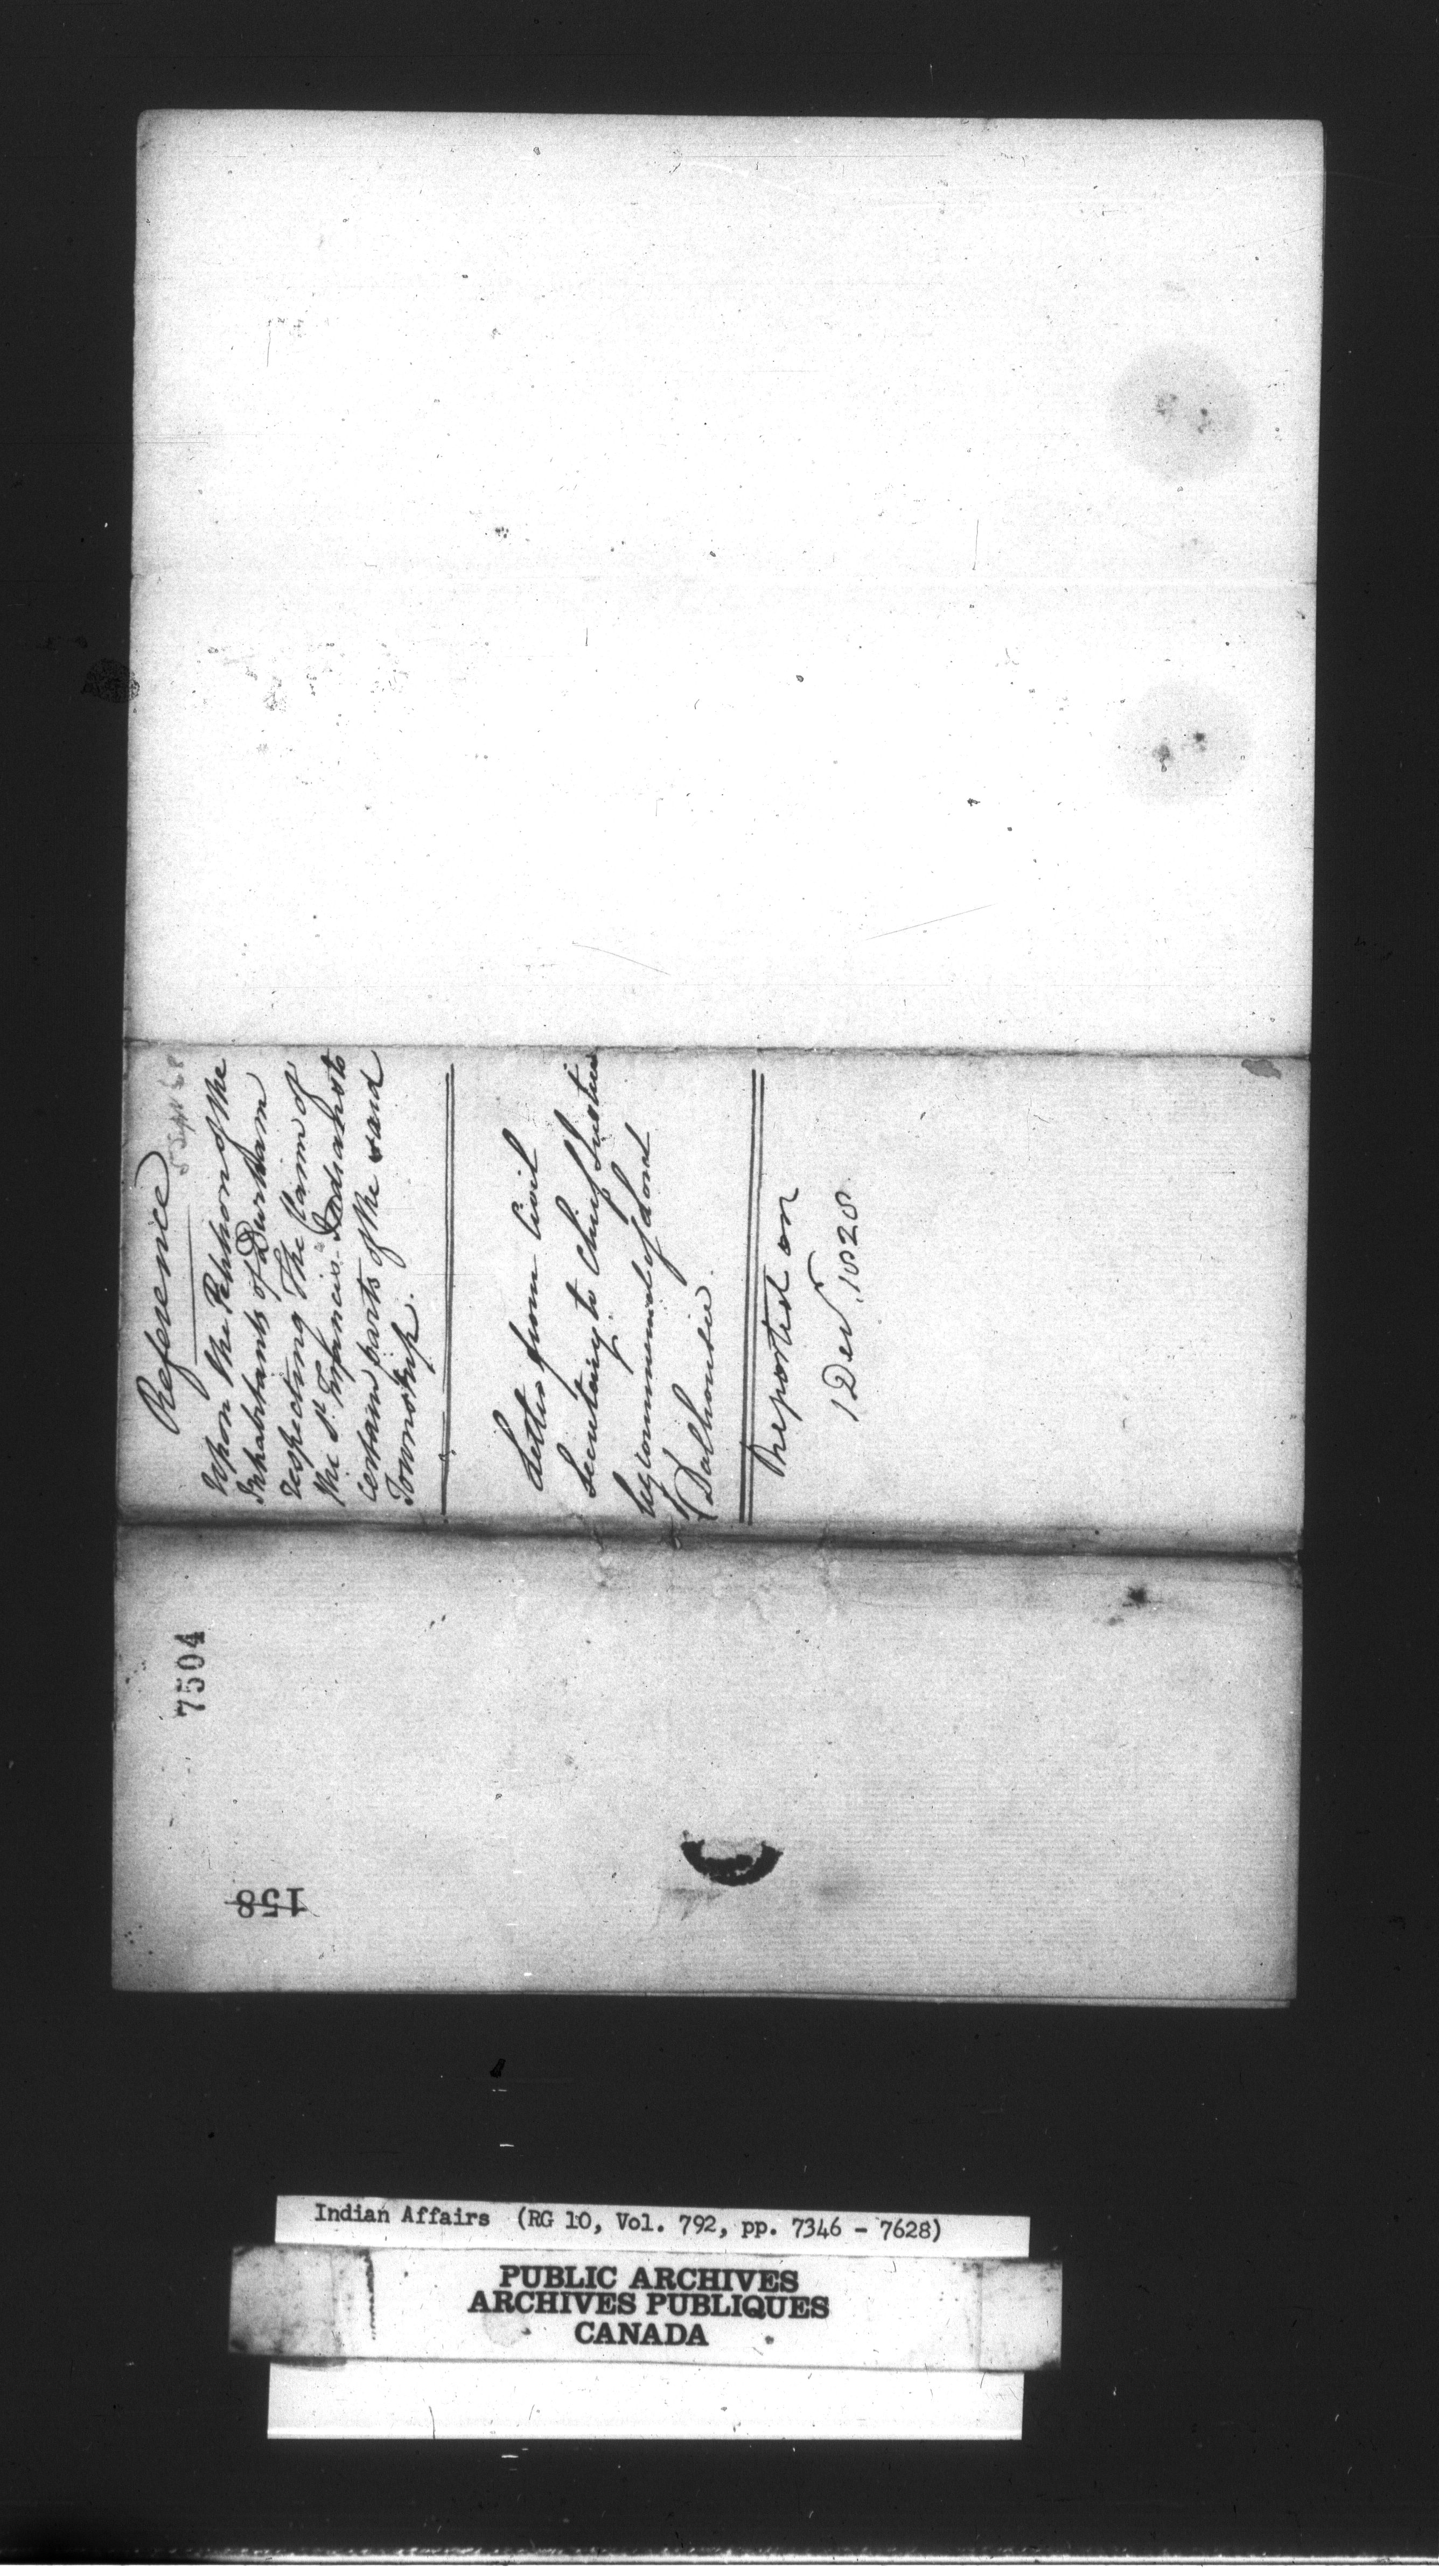 Reference
upon the Petition of the
Inhabitants of Durham
respecting the Claim of
the St. Francis Indians to
certain parts of the said
Township.
Letter from Civil
Secretary to Chief Justice
by command of Lord
Dalhousie.
Reported on
1 Decr. 1828
7504
158
Indian Affairs (RG 10, Vol. 792, pp. 7346 - 7628)
PUBLIC ARCHIVES
ARCHIVES PUBLIQUES
CANADA